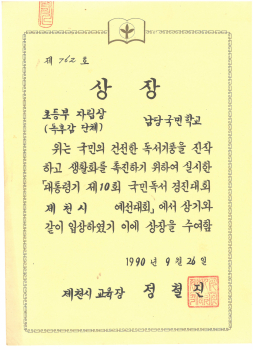 제 762 호
상 장
초등부 자림상
(독후감 단체) 남당국민학교
위는 국민의 건전한 독서기풍을 진작
하고 생활화를 촉진키 위하여 실시한
「대통령기 제10회 국민독서 경진대회
제천시 예선대회」에서 상기와
같이 입상하였기 이에 상장을 수여함
1990 년 9 월 26 일
제천시 교육장 정 철 진